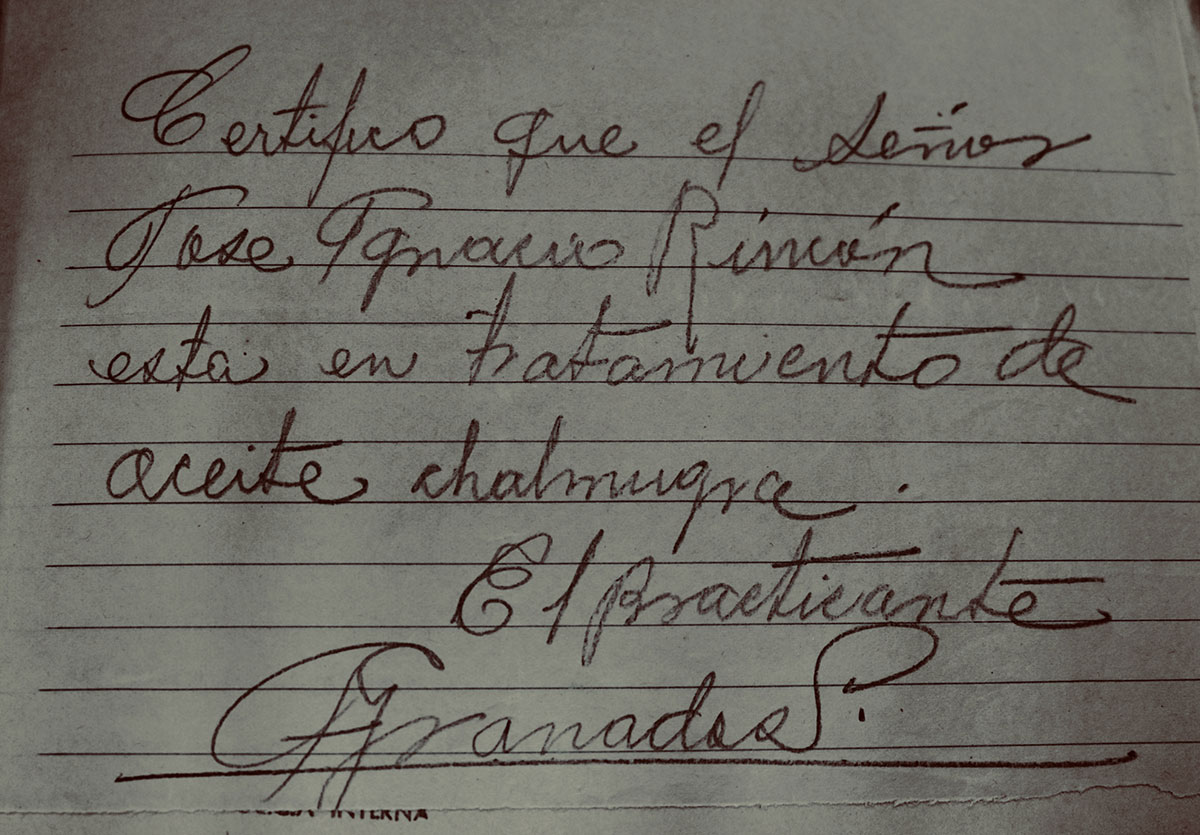 Certifico que el señor
Jose Ignacio Rincón
esta en tratamiento de
aceite chalmugra.
El practicante
Granados P.
INTERNA